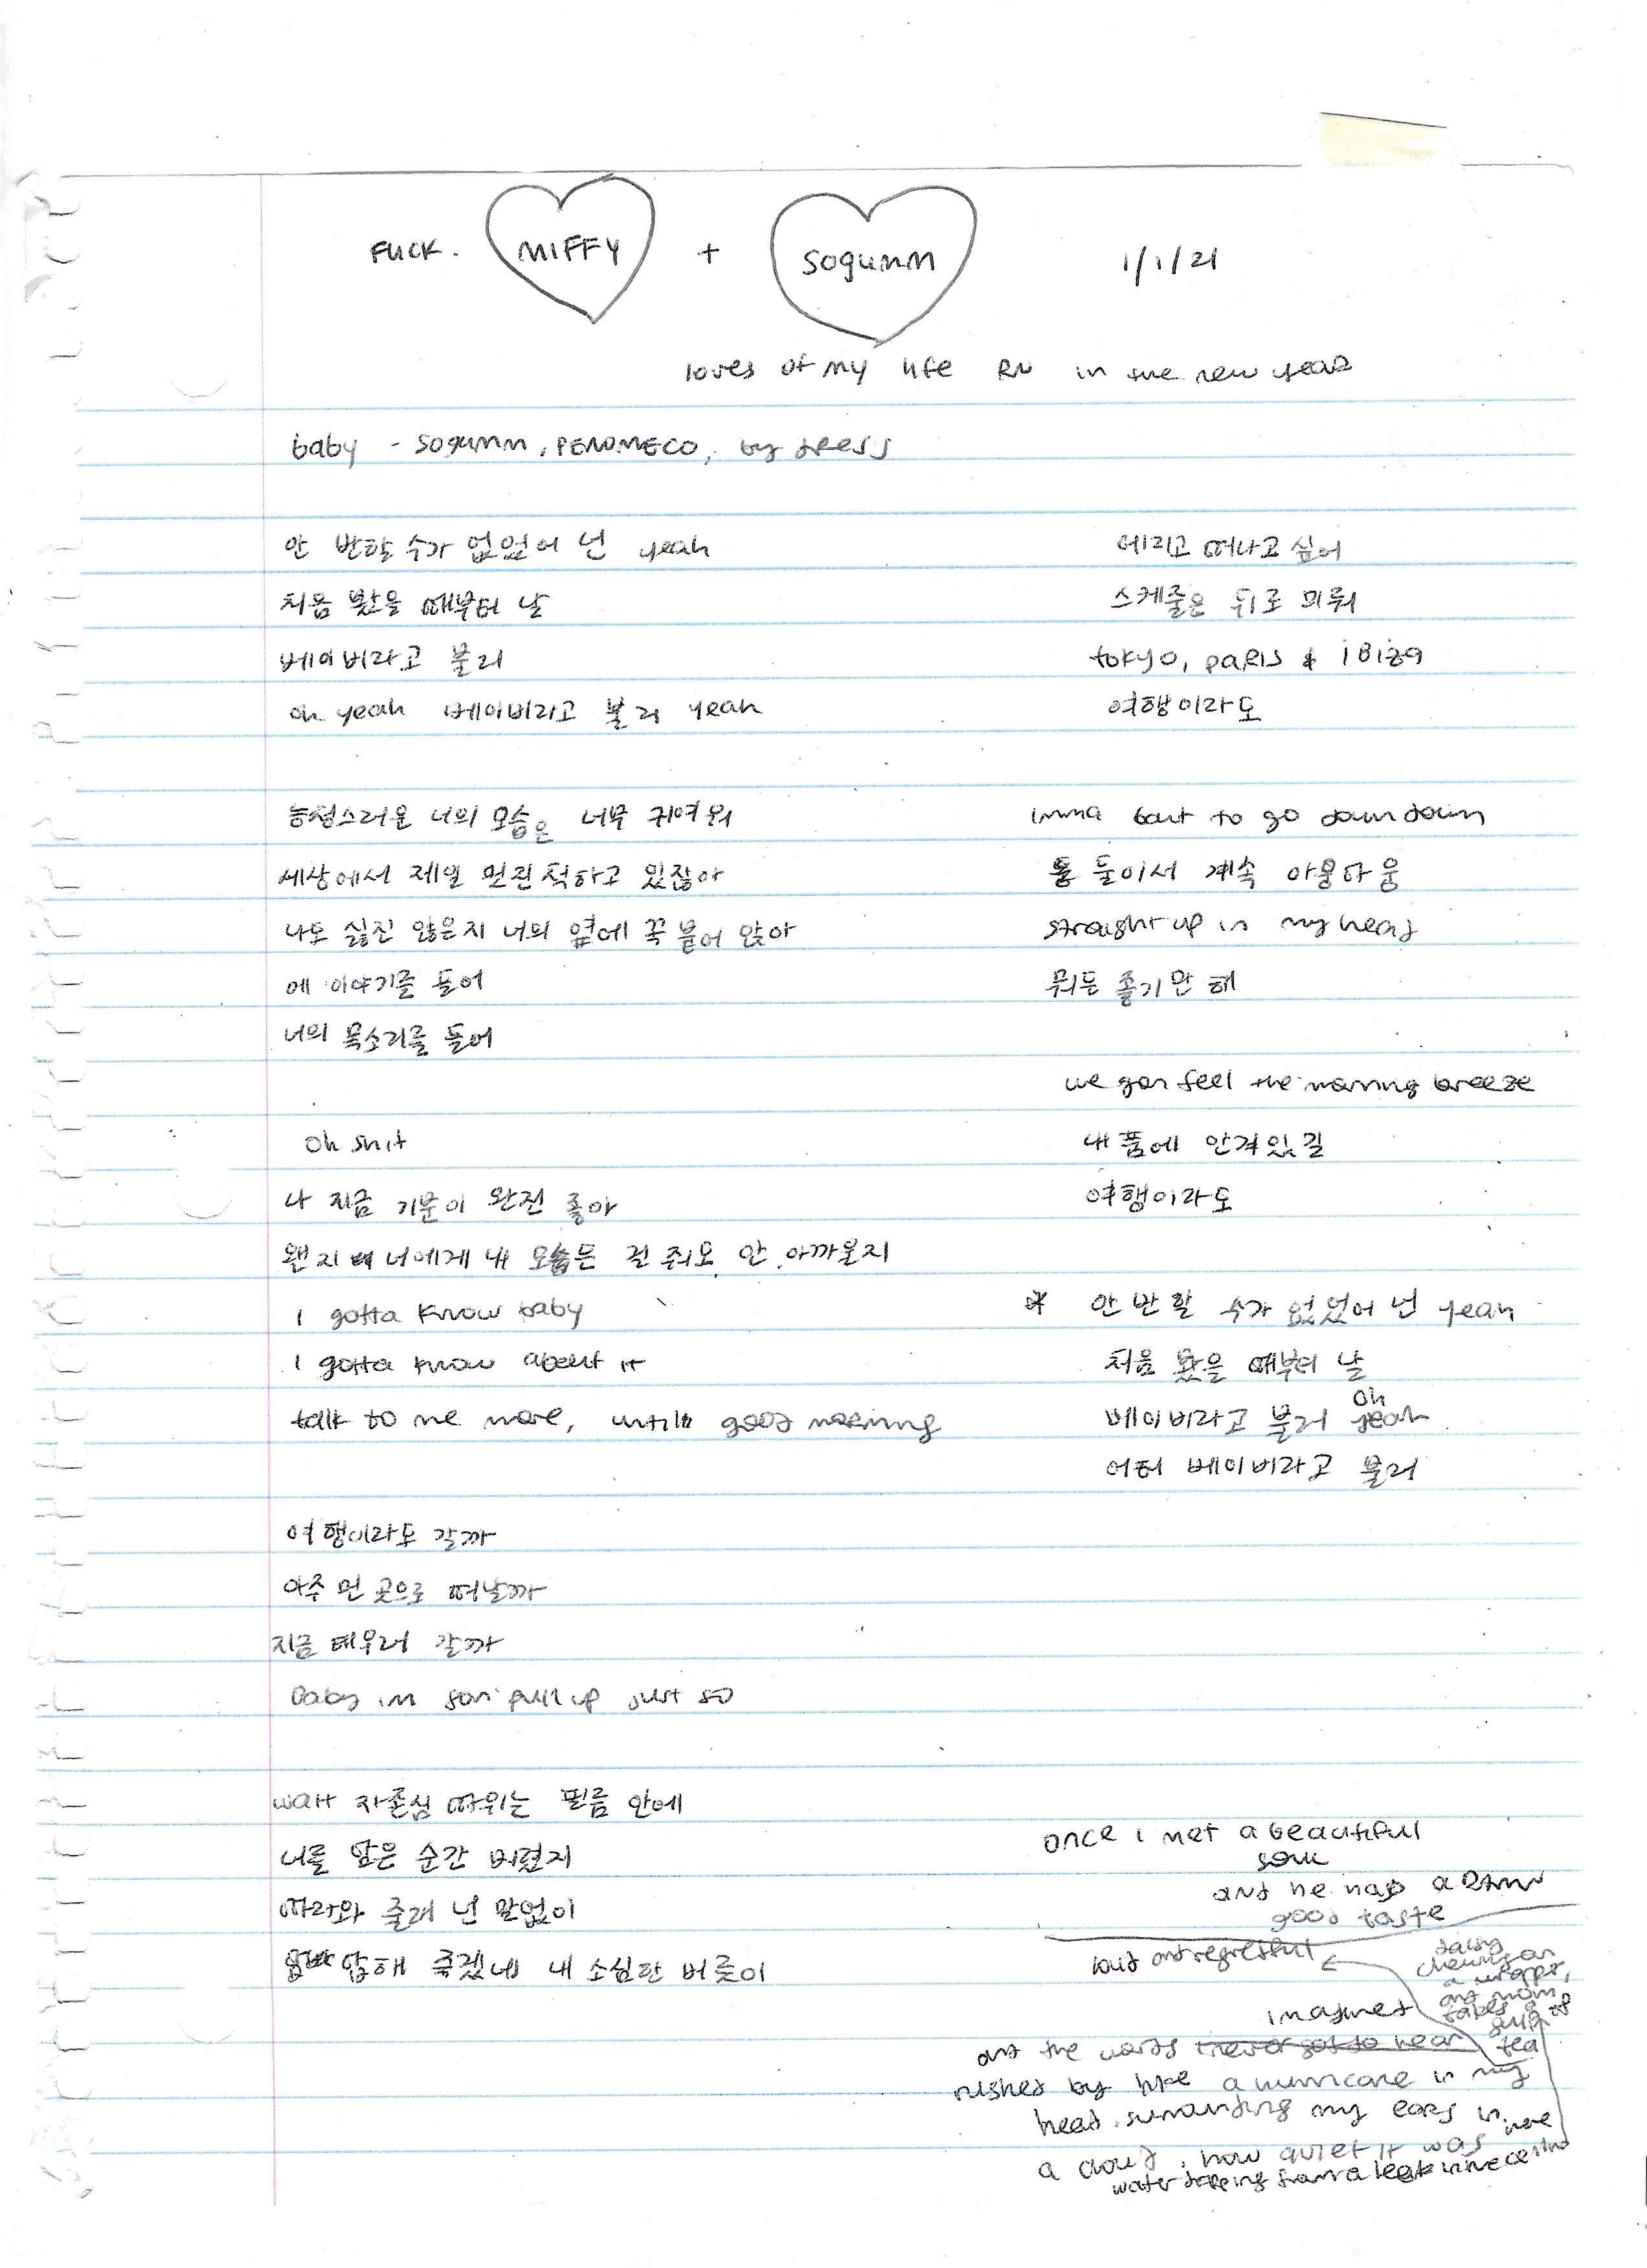 FUCK. MIFFY + sogumm 1/1/21
loves of my life RN in the new year
baby - sogumm, PENOMECO, by dress
안 반할 수가 없었어 넌 yeah
처음 봤을 때부터 날
베이비라고 불러
oh yeah 베이비라고 불러 yeah
능청스러운 너의 모습은 너무 귀여워
세상에서 제일 멋진 척하고 있잖아
나도 싫진 않은지 너의 옆에 꼭 붙어 앉아
에 이야기를 들어
너의 목소리를 들어
Oh shit
나 지금 기분이 완전 좋아
왠지 너에게 내 모든 걸 줘도 안 아까울지
I gotta know baby
I gotta know about it
talk to me more, until good morning
여행이라도 갈까
아주 먼 곳으로 떠날까
지금 태우러 갈까
Baby im gon' pull up just so
wait 자존심 따위는 필름 안에
너를 담은 순간 버렸지
따라와 줄래 넌 말없이
답해 죽겠네 내 소심한 버릇이
데리고 떠나고 싶어
스케줄은 뒤로 미뤄
tokyo, paris & ibiza
여행이라도
imma bout to go down down
둘이서 계속 아웅다웅
straight up in my head
뭐든 좋기만 해
we gon feel the morning breeze
내 품에 안겨있길
여행이라도
* 안 반할 수가 없었어 넌 yeah
처음 봤을 때부터 날
베이비라고 불러 oh yeah
어터 베이비라고 불러
once i met a beautiful
soul
and he had a
good taste
loud and regretful
daisy
chewing on
a wrapper,
and mom
takes a
gulp of
tea
imagined
and the words i never got to hear
rushed by like a hurricane in my
head. surrounding my ears in
a cloud. how quiet it was
water dripping from a leak in the ceiling